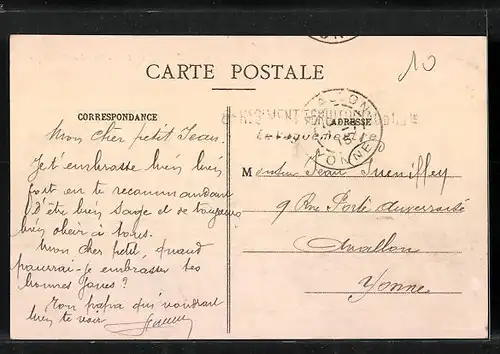 10
CARTE POSTALE
CORRESPONDANCE
ADRESSE
REGIMENT TERRITORIAL
Le Vaguemestre
AVALLON
YONNE
Mon cher petit Jean.
Je t'embrasse bien bien
fort en te recommandant
d'être bien sage et de toujours
bien obéir à tous.
Mon cher petit, quand
pourrai-je embrasser tes
bonnes joues?
Ton papa qui voudrait
bien te voir
Monsieur Jean
9 Rue Porte Auxerroise
Avallon
Yonne